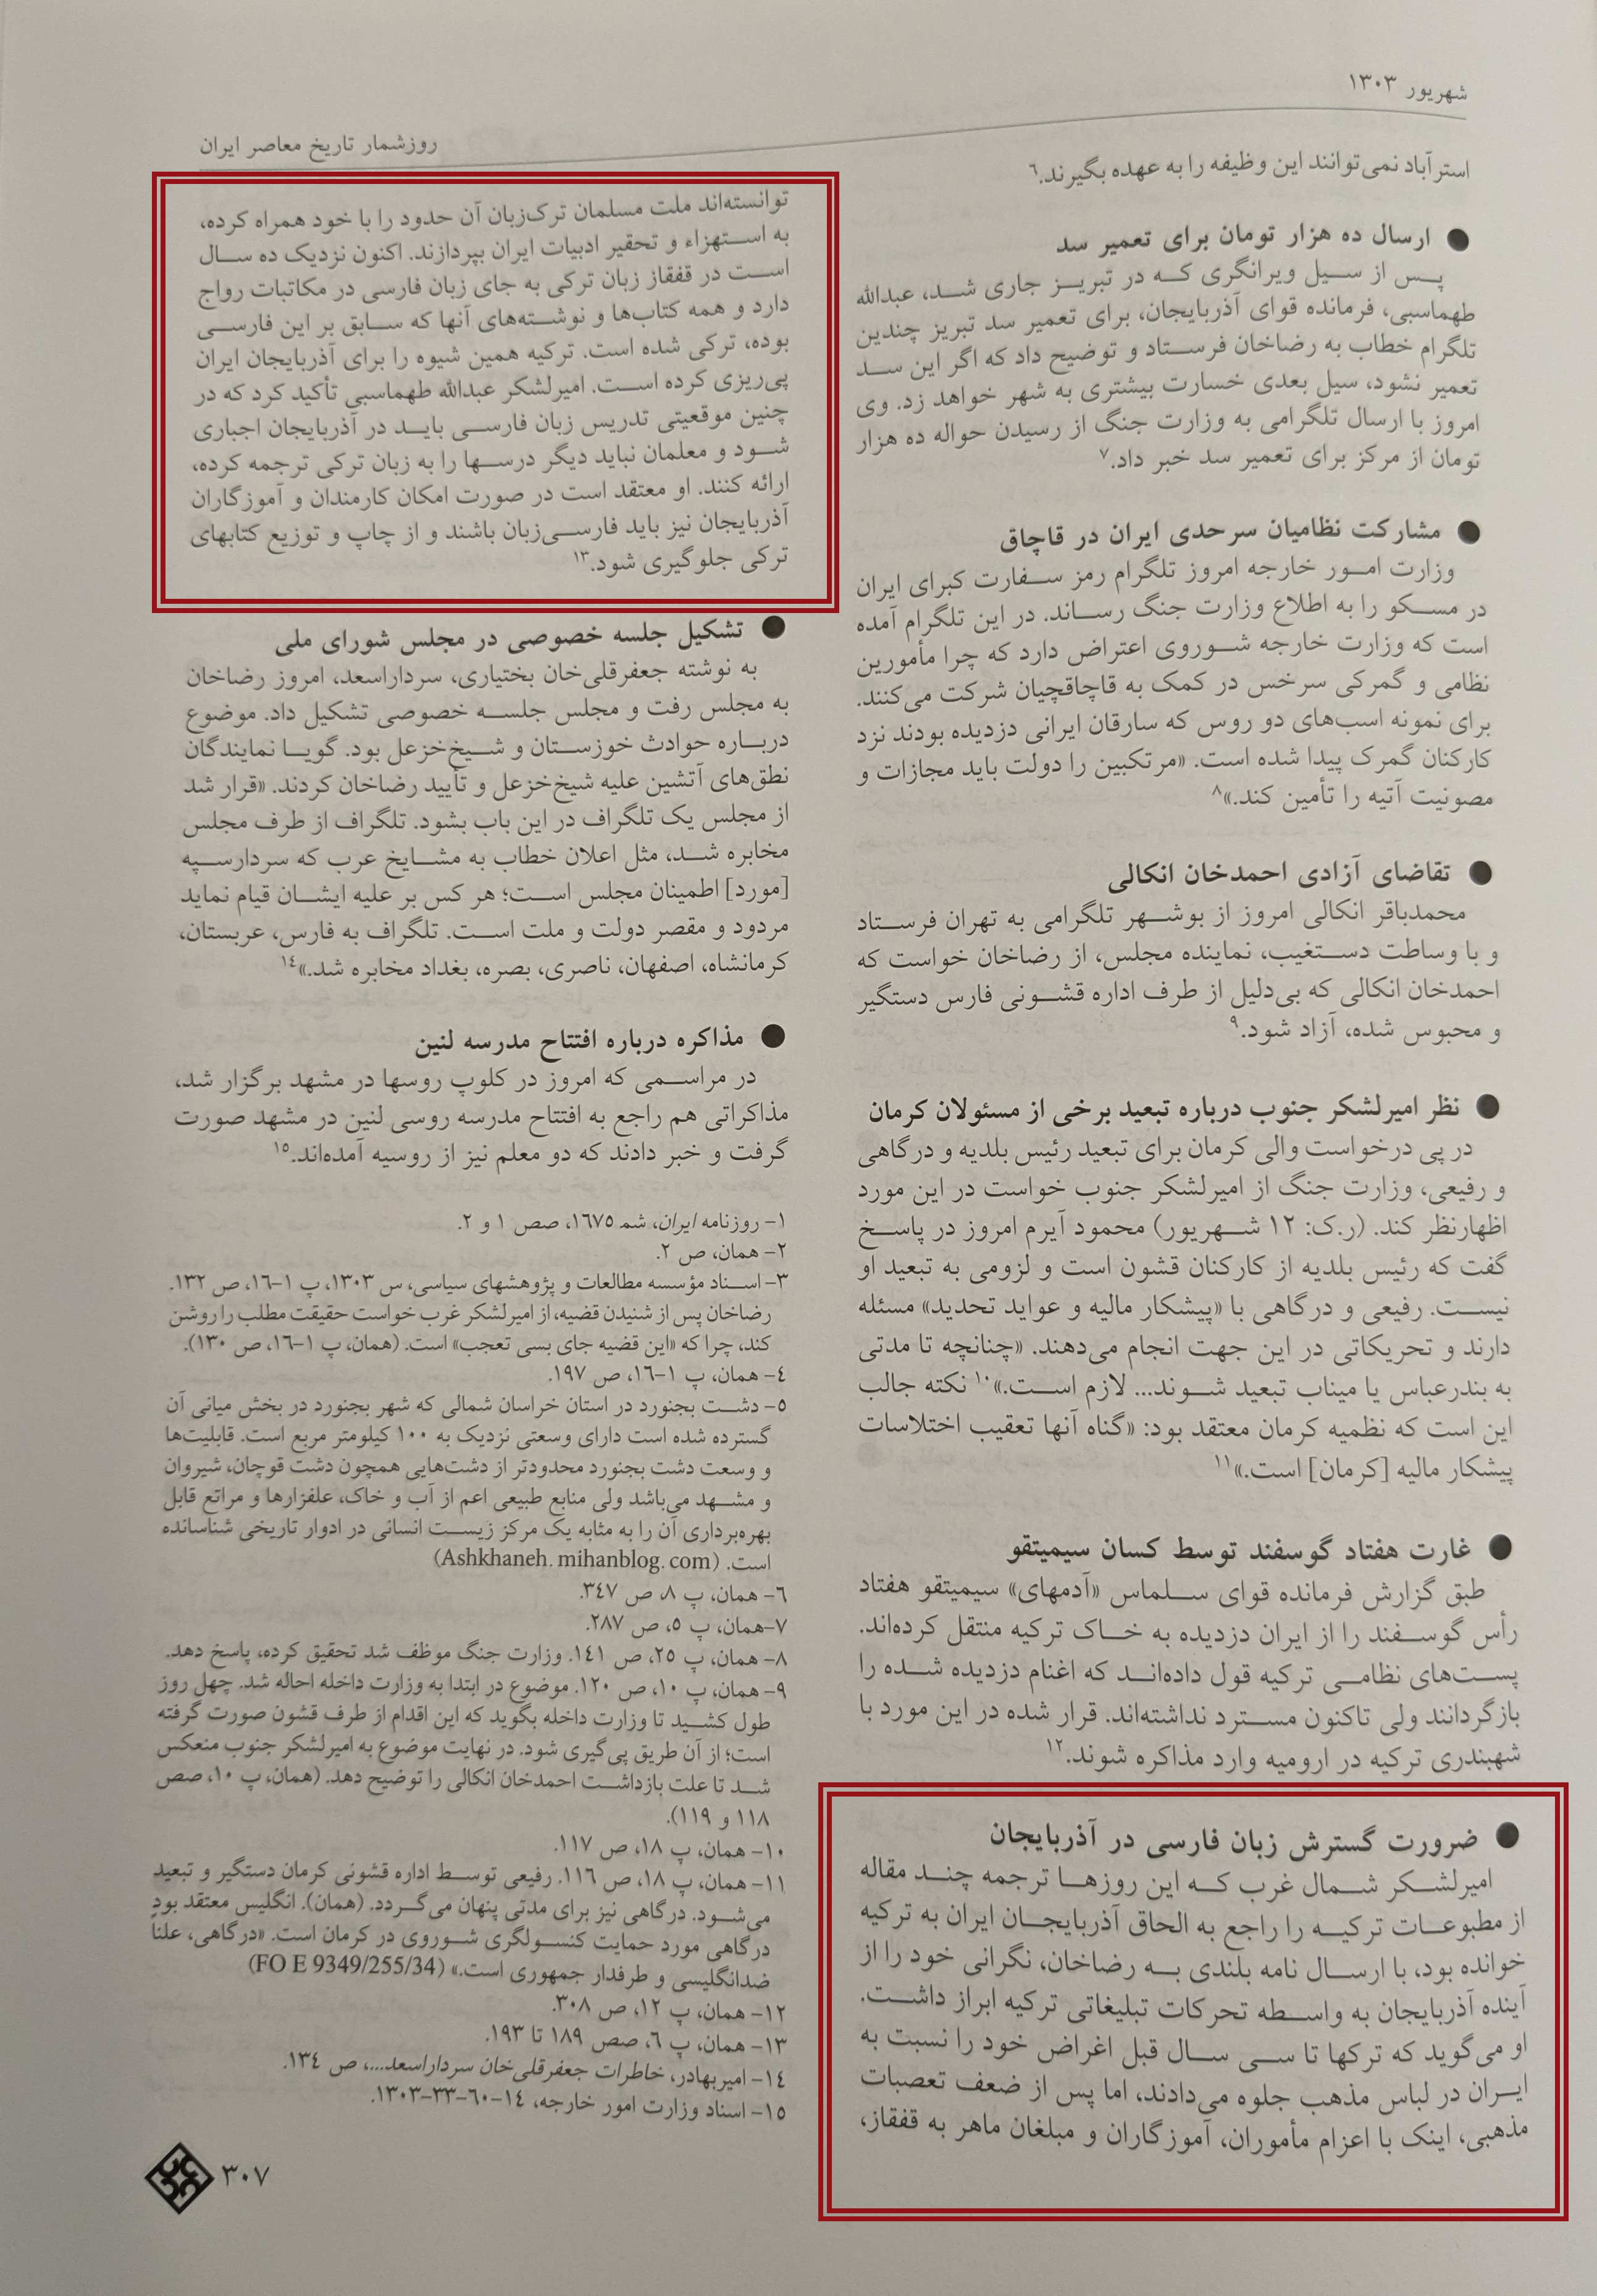 شهریور ۱۳۰۳
روزشمار تاریخ معاصر ایران
استرآباد نمی‌توانند این وظیفه را به عهده بگیرند.۶
● ارسال ده هزار تومان برای تعمیر سد
پس از سیل ویرانگری که در تبریز جاری شد، عبدالله
طهماسبی، فرمانده قوای آذربایجان، برای تعمیر سد تبریز چندین
تلگرام خطاب به رضاخان فرستاد و توضیح داد که اگر این سد
تعمیر نشود، سیل بعدی خسارت بیشتری به شهر خواهد زد. وی
امروز با ارسال تلگرامی به وزارت جنگ از رسیدن حواله ده هزار
تومان از مرکز برای تعمیر سد خبر داد.۷
● مشارکت نظامیان سرحدی ایران در قاچاق
وزارت امور خارجه امروز تلگرام رمز سفارت کبرای ایران
در مسکو را به اطلاع وزارت جنگ رساند. در این تلگرام آمده
است که وزارت خارجه شوروی اعتراض دارد که چرا مأمورین
نظامی و گمرکی سرخس در کمک به قاچاقچیان شرکت می‌کنند.
برای نمونه اسب‌های دو روس که سارقان ایرانی دزدیده بودند نزد
کارکنان گمرک پیدا شده است. «مرتکبین را دولت باید مجازات و
مصونیت آتیه را تأمین کند.»۸
● تقاضای آزادی احمدخان انکالی
محمدباقر انکالی امروز از بوشهر تلگرامی به تهران فرستاد
و با وساطت دستغیب، نماینده مجلس، از رضاخان خواست که
احمدخان انکالی که بی‌دلیل از طرف اداره قشونی فارس دستگیر
و محبوس شده، آزاد شود.۹
● نظر امیرلشکر جنوب درباره تبعید برخی از مسئولان کرمان
در پی درخواست والی کرمان برای تبعید رئیس بلدیه و درگاهی
و رفیعی، وزارت جنگ از امیرلشکر جنوب خواست در این مورد
اظهارنظر کند. (ر.ک: ۱۲ شهریور) محمود آیرم امروز در پاسخ
گفت که رئیس بلدیه از کارکنان قشون است و لزومی به تبعید او
نیست. رفیعی و درگاهی با «پیشکار مالیه و عواید تحدید» مسئله
دارند و تحریکاتی در این جهت انجام می‌دهند. «چنانچه تا مدتی
به بندرعباس یا میناب تبعید شوند... لازم است.»۱۰ نکته جالب
این است که نظمیه کرمان معتقد بود: «گناه آنها تعقیب اختلاسات
پیشکار مالیه [کرمان] است.»۱۱
● غارت هفتاد گوسفند توسط کسان سیمیتقو
طبق گزارش فرمانده قوای سلماس «آدمهای» سیمیتقو هفتاد
رأس گوسفند را از ایران دزدیده به خاک ترکیه منتقل کرده‌اند.
پست‌های نظامی ترکیه قول داده‌اند که اغنام دزدیده شده را
بازگردانند ولی تاکنون مسترد نداشته‌اند. قرار شده در این مورد با
شهبندری ترکیه در ارومیه وارد مذاکره شوند.۱۲
● ضرورت گسترش زبان فارسی در آذربایجان
امیرلشکر شمال غرب که این روزها ترجمه چند مقاله
از مطبوعات ترکیه را راجع به الحاق آذربایجان ایران به ترکیه
خوانده بود، با ارسال نامه بلندی به رضاخان، نگرانی خود را از
آینده آذربایجان به واسطه تحرکات تبلیغاتی ترکیه ابراز داشت.
او می‌گوید که ترکها تا سی سال قبل اغراض خود را نسبت به
ایران در لباس مذهب جلوه می‌دادند، اما پس از ضعف تعصبات
مذهبی، اینک با اعزام مأموران، آموزگاران و مبلغان ماهر به قفقاز،
توانسته‌اند ملت مسلمان ترک‌زبان آن حدود را با خود همراه کرده،
به استهزاء و تحقیر ادبیات ایران بپردازند. اکنون نزدیک ده سال
است در قفقاز زبان ترکی به جای زبان فارسی در مکاتبات رواج
دارد و همه کتاب‌ها و نوشته‌های آنها که سابق بر این فارسی
بوده، ترکی شده است. ترکیه همین شیوه را برای آذربایجان ایران
پی‌ریزی کرده است. امیرلشکر عبدالله طهماسبی تأکید کرد که در
چنین موقعیتی تدریس زبان فارسی باید در آذربایجان اجباری
شود و معلمان نباید دیگر درسها را به زبان ترکی ترجمه کرده،
ارائه کنند. او معتقد است در صورت امکان کارمندان و آموزگاران
آذربایجان نیز باید فارسی‌زبان باشند و از چاپ و توزیع کتابهای
ترکی جلوگیری شود.۱۳
● تشکیل جلسه خصوصی در مجلس شورای ملی
به نوشته جعفرقلی‌خان بختیاری، سرداراسعد، امروز رضاخان
به مجلس رفت و مجلس جلسه خصوصی تشکیل داد. موضوع
درباره حوادث خوزستان و شیخ‌خزعل بود. گویا نمایندگان
نطق‌های آتشین علیه شیخ‌خزعل و تأیید رضاخان کردند. «قرار شد
از مجلس یک تلگراف در این باب بشود. تلگراف از طرف مجلس
مخابره شد، مثل اعلان خطاب به مشایخ عرب که سردارسپه
[مورد] اطمینان مجلس است؛ هر کس بر علیه ایشان قیام نماید
مردود و مقصر دولت و ملت است. تلگراف به فارس، عربستان،
کرمانشاه، اصفهان، ناصری، بصره، بغداد مخابره شد.»۱۴
● مذاکره درباره افتتاح مدرسه لنین
در مراسمی که امروز در کلوپ روسها در مشهد برگزار شد،
مذاکراتی هم راجع به افتتاح مدرسه روسی لنین در مشهد صورت
گرفت و خبر دادند که دو معلم نیز از روسیه آمده‌اند.۱۵
۱- روزنامه ایران، شمـ ۱۶۷۵، صص ۱ و ۲.
۲- همان، ص ۲.
۳- اسناد مؤسسه مطالعات و پژوهشهای سیاسی، س ۱۳۰۳، پ ۱-۱۶، ص ۱۳۲.
رضاخان پس از شنیدن قضیه، از امیرلشکر غرب خواست حقیقت مطلب را روشن
کند، چرا که «این قضیه جای بسی تعجب» است. (همان، پ ۱-۱۶، ص ۱۳۰).
۴- همان، پ ۱-۱۶، ص ۱۹۷.
۵- دشت بجنورد در استان خراسان شمالی که شهر بجنورد در بخش میانی آن
گسترده شده است دارای وسعتی نزدیک به ۱۰۰ کیلومتر مربع است. قابلیت‌ها
و وسعت دشت بجنورد محدودتر از دشت‌هایی همچون دشت قوچان، شیروان
و مشهد می‌باشد ولی منابع طبیعی اعم از آب و خاک، علفزارها و مراتع قابل
بهره‌برداری آن را به مثابه یک مرکز زیست انسانی در ادوار تاریخی شناسانده
است. (Ashkhaneh. mihanblog. com)
۶- همان، پ ۸، ص ۳۴۷.
۷-همان، پ ۵، ص ۲۸۷.
۸- همان، پ ۲۵، ص ۱۴۱. وزارت جنگ موظف شد تحقیق کرده، پاسخ دهد.
۹- همان، پ ۱۰، ص ۱۲۰. موضوع در ابتدا به وزارت داخله احاله شد. چهل روز
طول کشید تا وزارت داخله بگوید که این اقدام از طرف قشون صورت گرفته
است؛ از آن طریق پی‌گیری شود. در نهایت موضوع به امیرلشکر جنوب منعکس
شد تا علت بازداشت احمدخان انکالی را توضیح دهد. (همان، پ ۱۰، صص
۱۱۸ و ۱۱۹).
۱۰- همان، پ ۱۸، ص ۱۱۷.
۱۱- همان، پ ۱۸، ص ۱۱۶. رفیعی توسط اداره قشونی کرمان دستگیر و تبعید
می‌شود. درگاهی نیز برای مدتی پنهان می‌گردد. (همان). انگلیس معتقد بود
درگاهی مورد حمایت کنسولگری شوروی در کرمان است. «درگاهی، علناً
ضدانگلیسی و طرفدار جمهوری است.» (FO E 9349/255/34)
۱۲- همان، پ ۱۲، ص ۳۰۸.
۱۳- همان، پ ۶، صص ۱۸۹ تا ۱۹۳.
۱۴- امیربهادر، خاطرات جعفرقلی‌خان سرداراسعد...، ص ۱۳۴.
۱۵- اسناد وزارت امور خارجه، ۱۴-۶۰-۳۳-۱۳۰۳.
۳۰۷